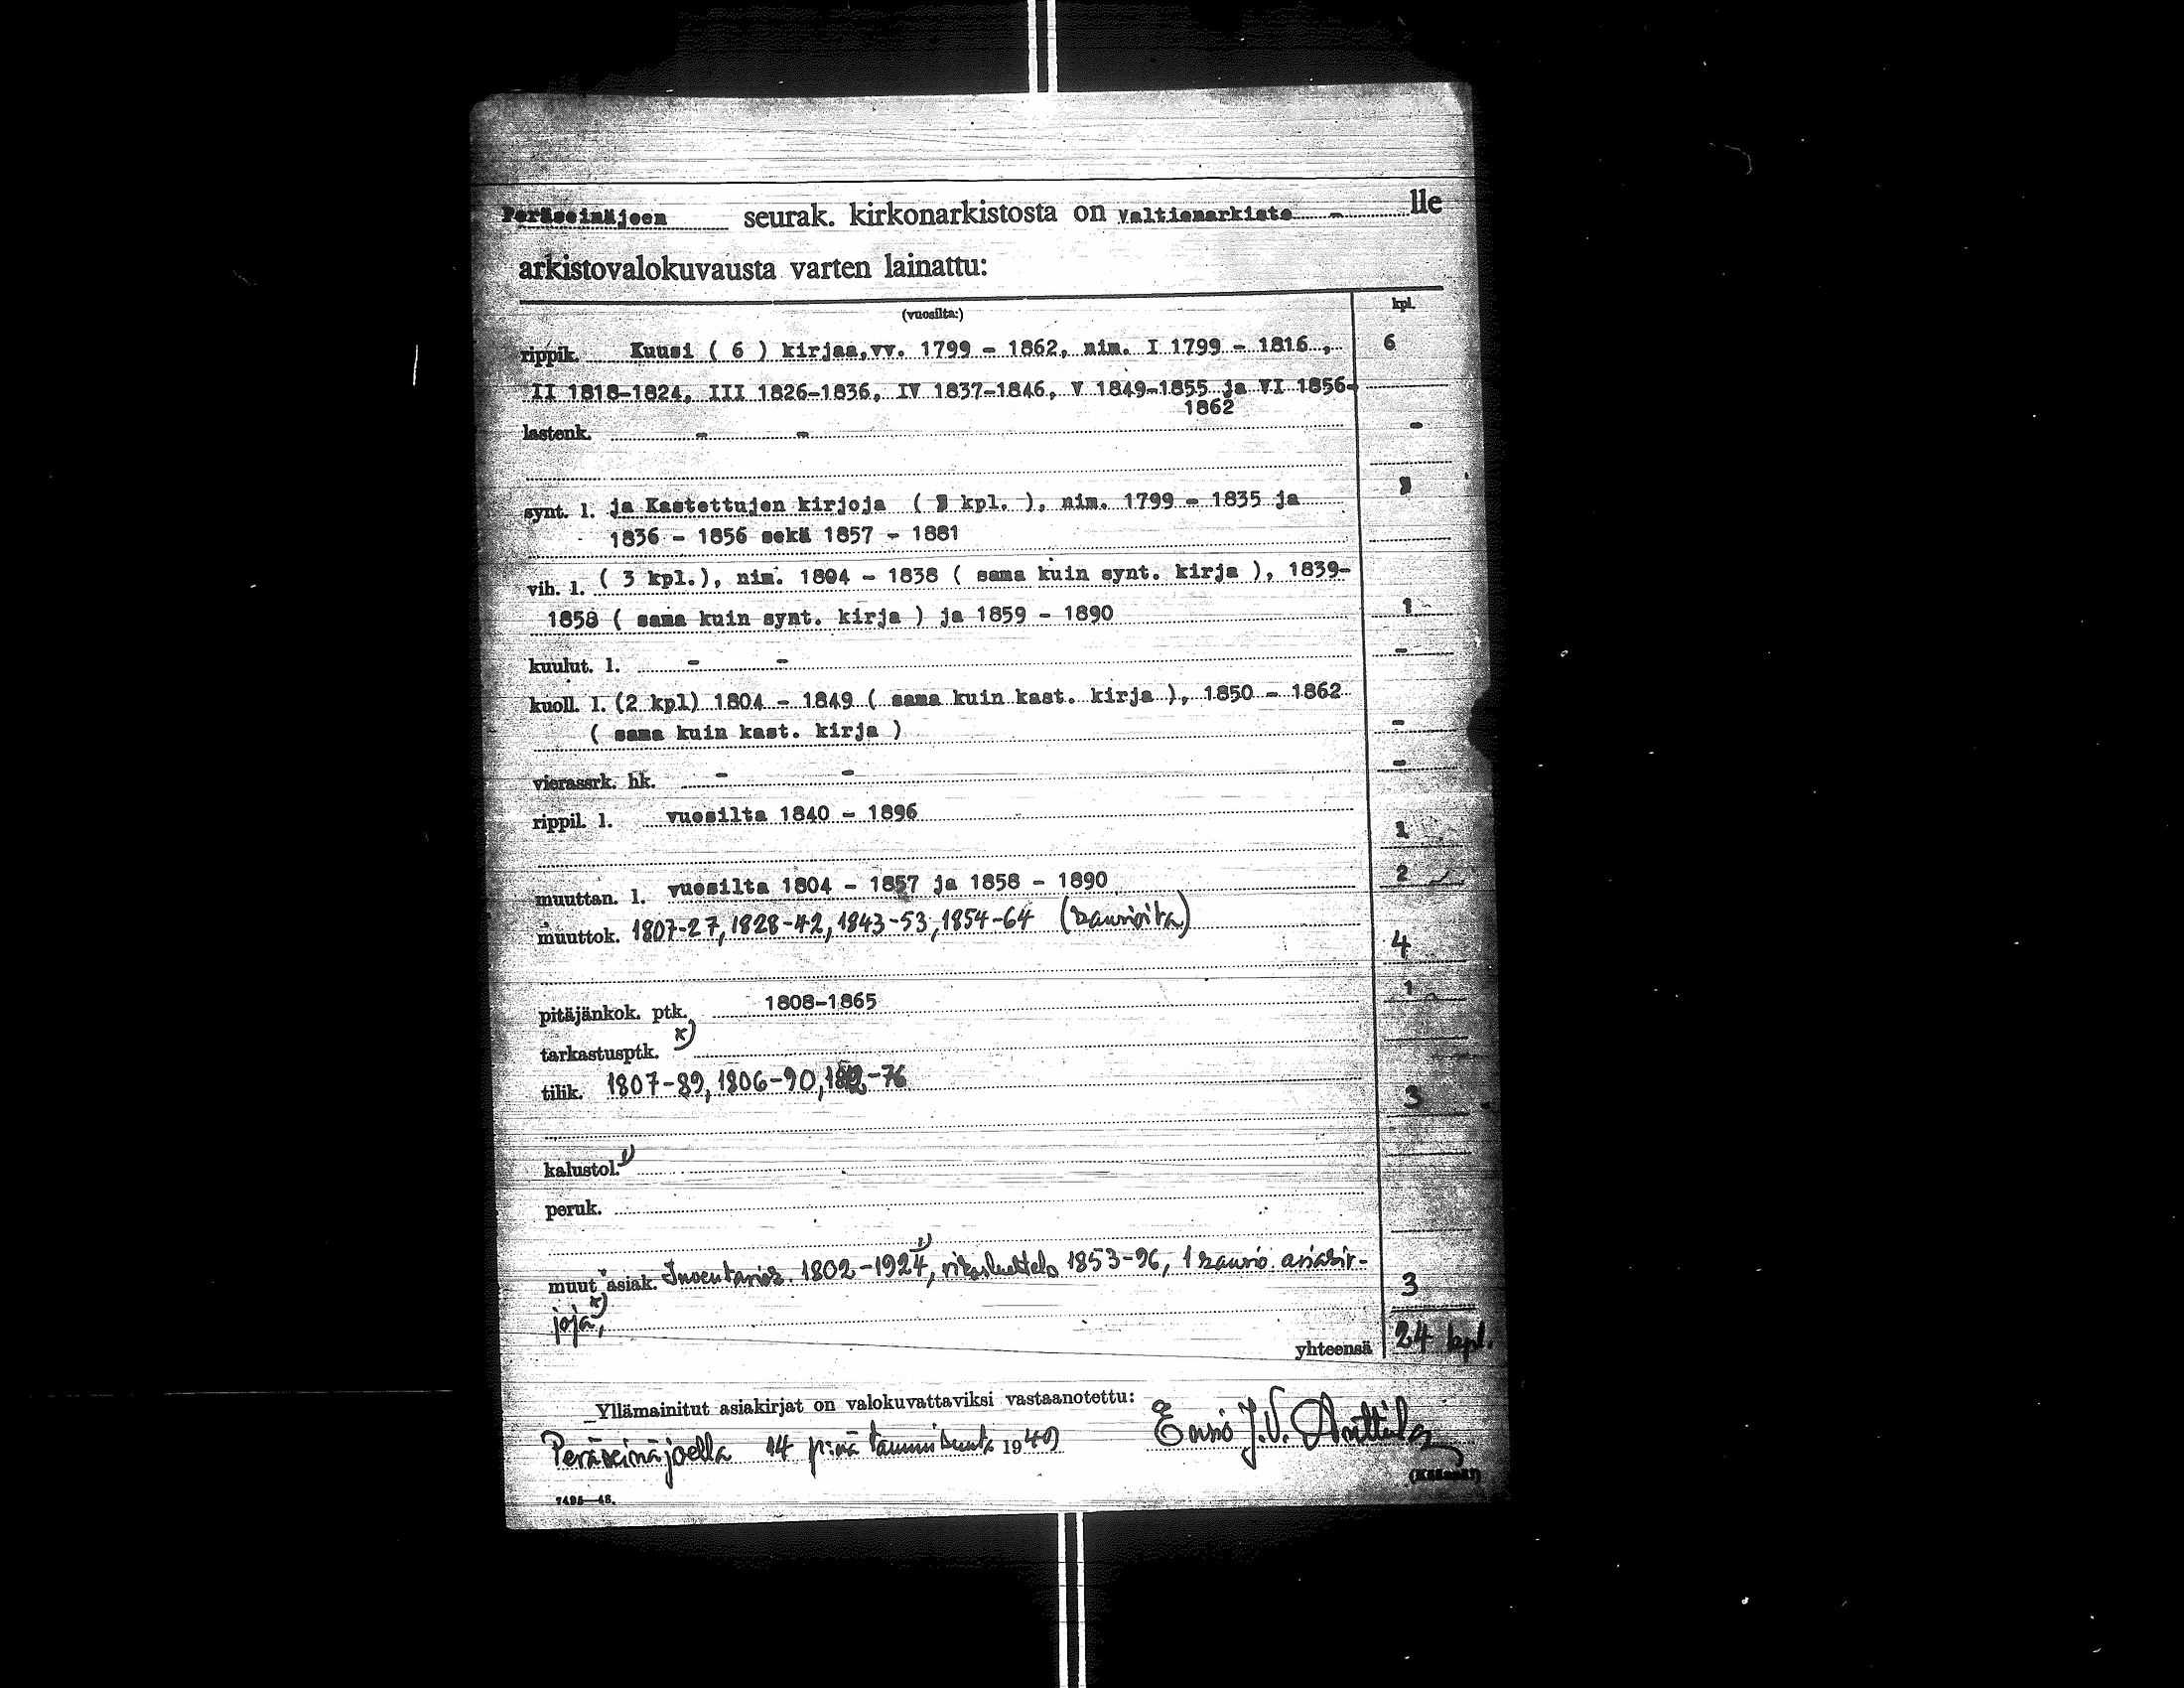 Peräseinäjoen seurak. kirkonarkistosta on Valtionarkisto - lle
arkistovalokuvausta varten lainattu:
(vuosilta:) kpl.
rippik. Kuusi ( 6 ) kirjaa, vv. 1799 - 1862, nim. I 1799 - 1816 , 6
II 1818-1824, III 1826-1836, IV 1837-1846, V 1849-1855 ja VI 1856-
1862
lastenk. - - -
synt. l. ja Kastettujen kirjoja ( kpl. ), nim. 1799 - 1835 ja
1836 - 1856 sekä 1857 - 1881
vih. l. ( 3 kpl.), nim. 1804 - 1838 ( sama kuin synt. kirja ), 1839-
1858 ( sama kuin synt. kirja ) ja 1859 - 1890 1
kuulut. l. - - -
kuoll. l. (2 kpl) 1804 - 1849 ( sama kuin kast. kirja ), 1850 - 1862
( sama kuin kast. kirja ) -
vierassrk. hk. - - -
rippil. l. vuosilta 1840 - 1896 1
muuttan. l. vuosilta 1804 - 1857 ja 1858 - 1890 2
muuttok. 1807-27, 1828-42, 1843-53, 1854-64 4
pitäjänkok. ptk. 1808-1865 1
tarkastusptk. x)
tilik. 1807-89, 1806-90, -76 3
kalustol. 1)
peruk.
muut asiak. 1802-1924 1), 1853-96, 1 asiakir- 3
joja x),
yhteensä 24 kpl.
Yllämainitut asiakirjat on valokuvattaviksi vastaanotettu:
Peräseinäjoella 14 p:nä tammikuuta 1949 J.V. Anttila
7495—48.